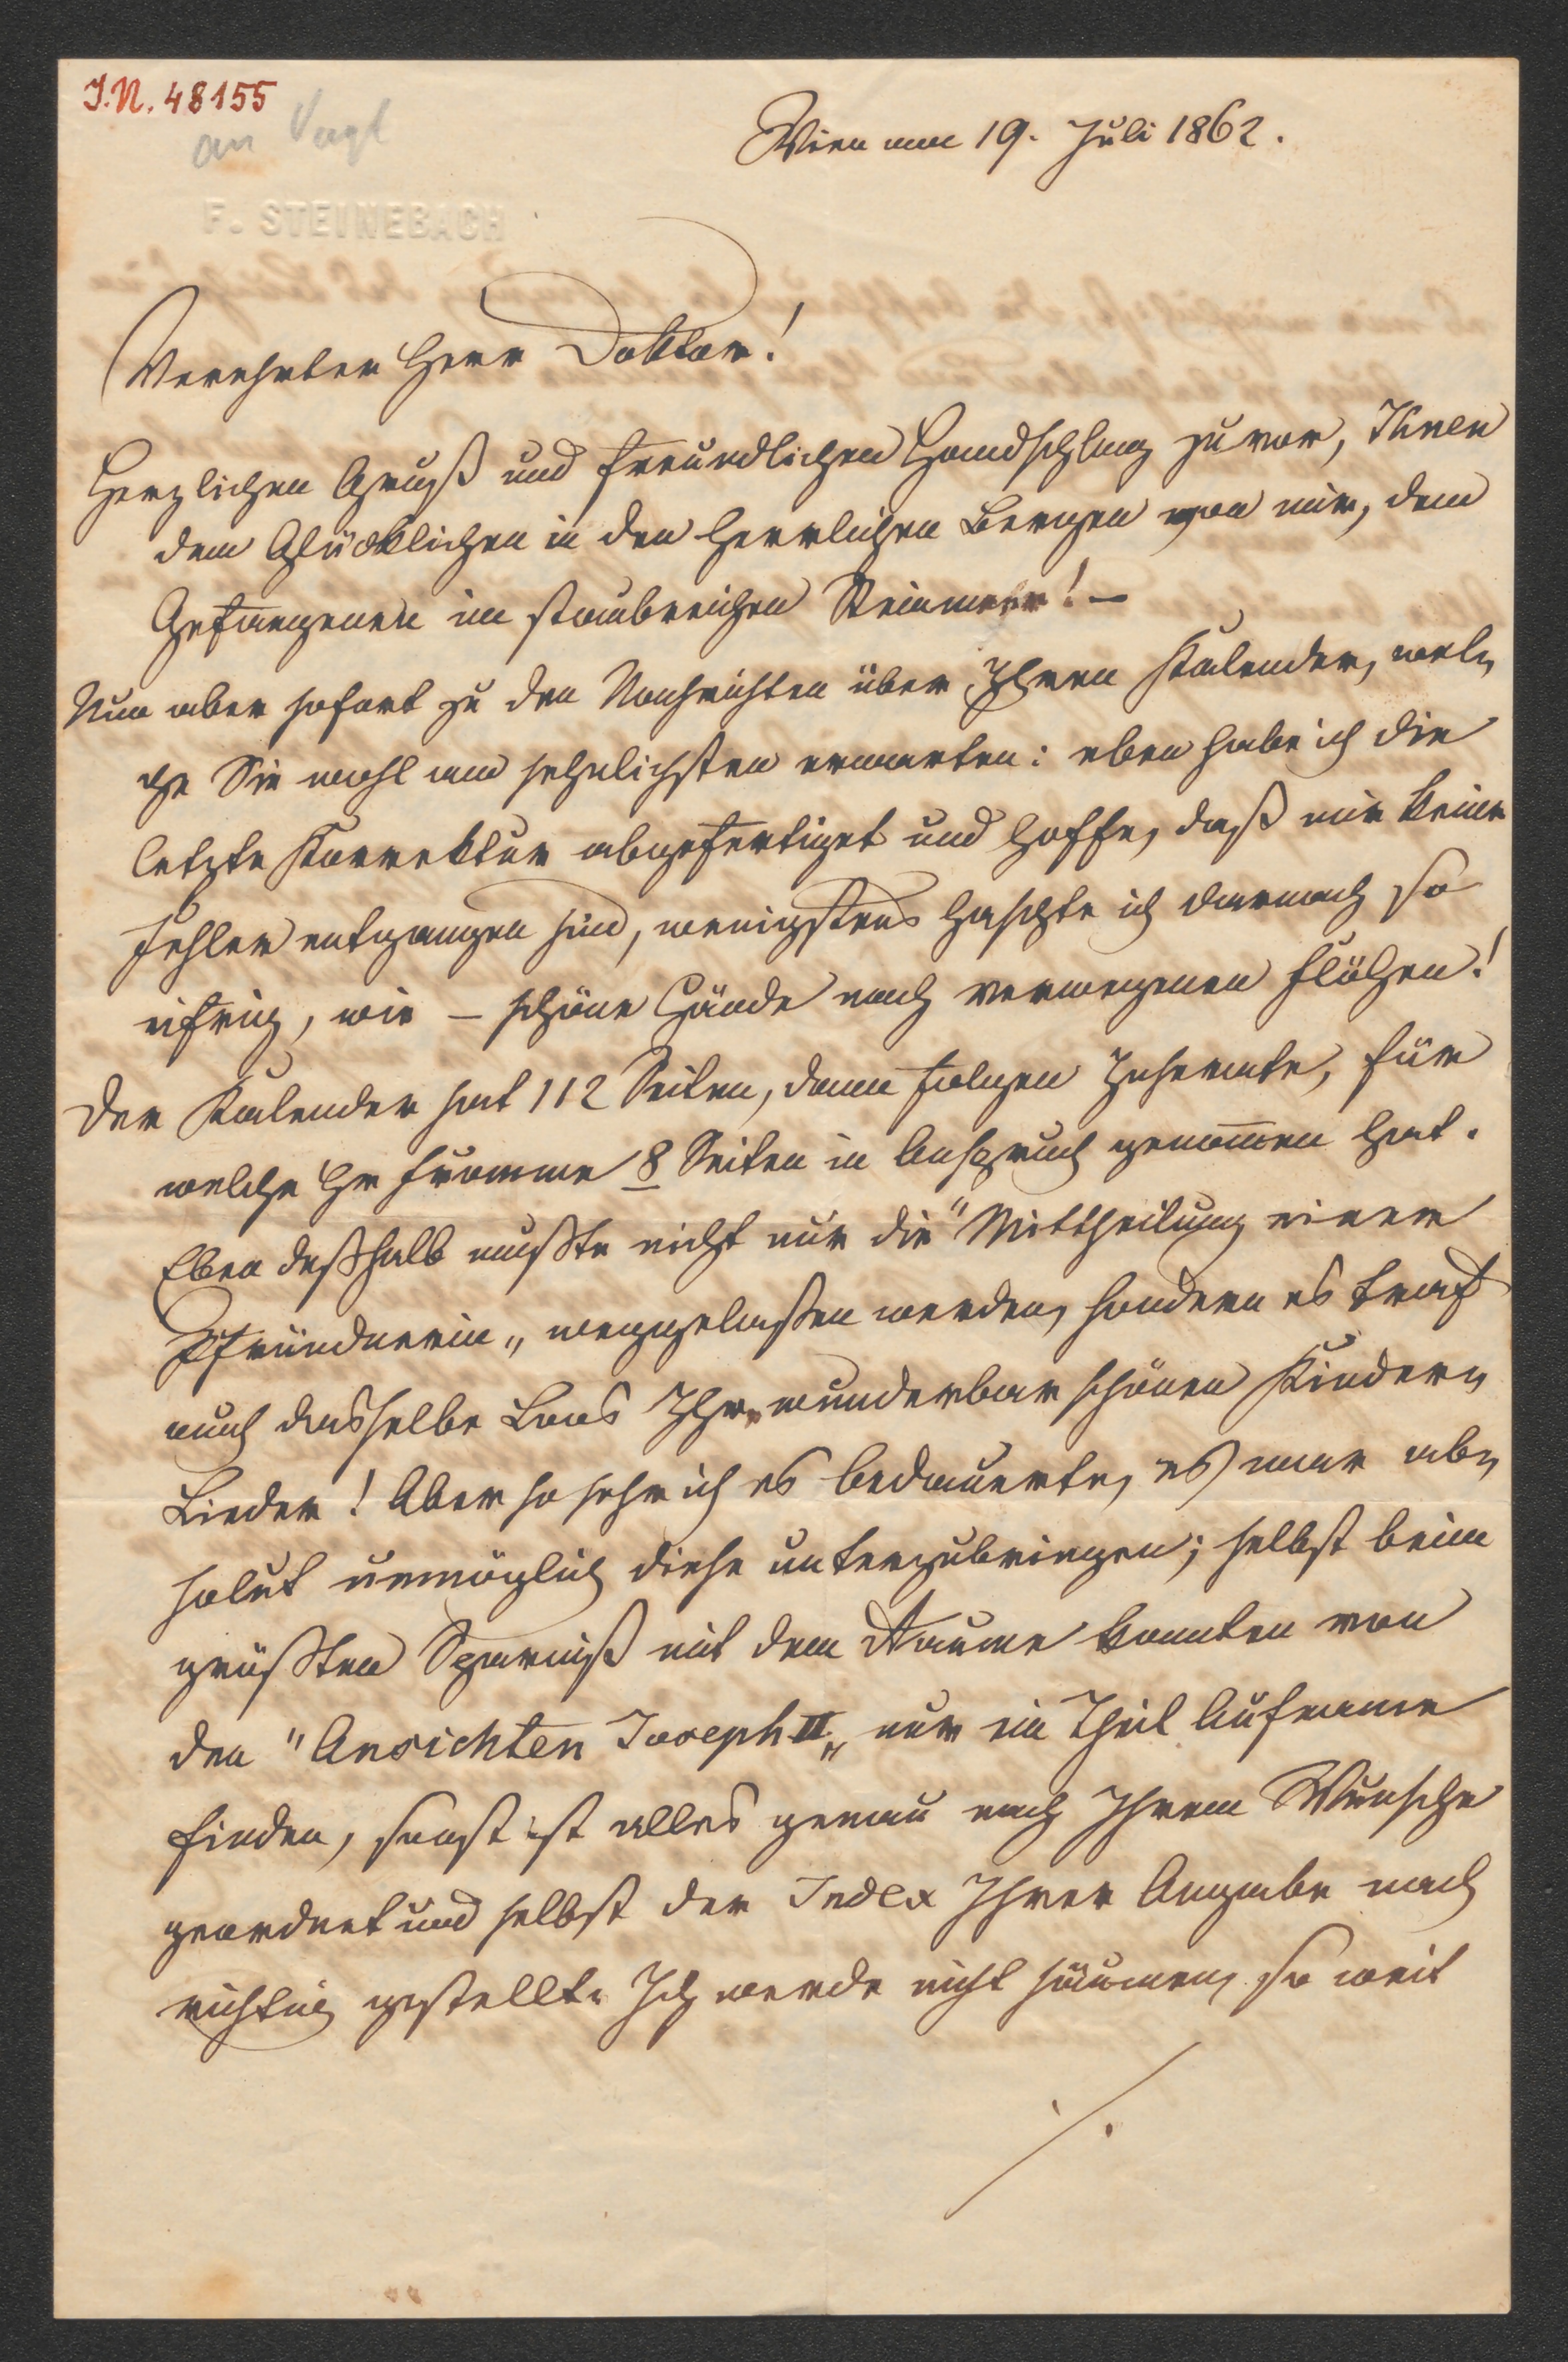 I.N. 48155
an Vogl
Wien am 19. Juli 1862.
F. STEINEBACH
Verehrter Herr Doktor!
Herzlichen Gruß und freundlichen Handschlag zuvor, Ihnen
dem Glücklichen in den herrlichen Bergen von mir, dem
Gefangenen im staubreichen Steinmeer! –
Nun aber sofort zu den Nachrichten über Ihren Kalender, wel-
che Sie wohl am sehnlichsten erwarten: eben habe ich die
letzte Korrektur abgefertiget und hoffe, daß mir keine
Fehler entgangen sind, wenigstens haschte ich darnach so
eifrig, wie – schöne Hände nach verwegenen Flöhen!
Der Kalender hat 112 Seiten, dann folgen Inserate, für
welche Hr Fromme 8 Seiten in Anspruch genom̅en hat.
Eben deßhalb mußte nicht nur die "Mittheilung einer
Pfründnerin„ weggelaßen werden, sondern es traf
auch dasselbe Loos Ihre wunderbar schönen Kinder-
Lieder! Aber so sehr ich es bedauerte, es war ab-
solut unmöglich diese unterzubringen; selbst beim
größten Sparniß mit dem Raume konnten von
den "Ansichten Joseph II„ nur ein Theil Aufname
finden, sonst ist alles genau nach Ihrem Wunsche
geordnet und selbst der Index Ihrer Angabe nach
richtig gestellt. Ich werde nicht säumen, so weit
./.